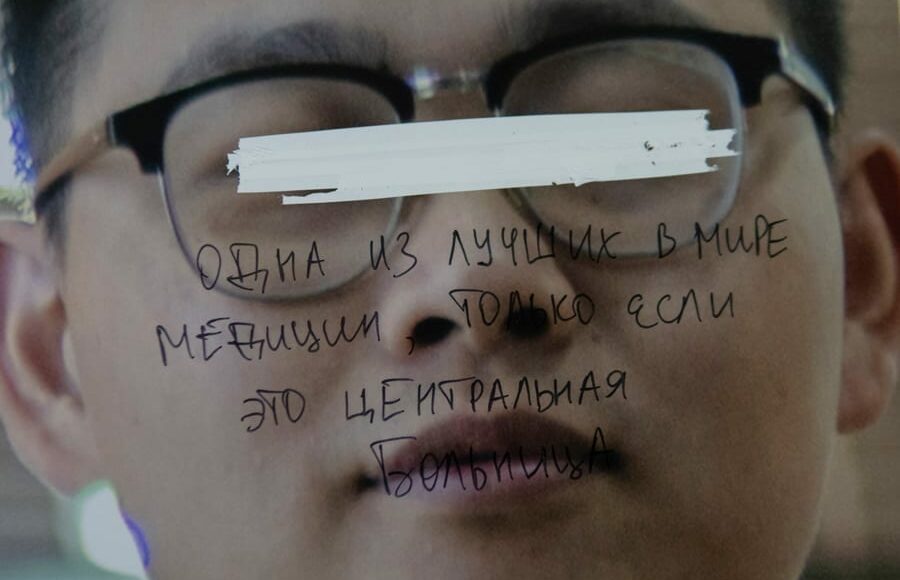 ОДНА ИЗ ЛУЧШИХ В МИРЕ
МЕДИЦИН, ТОЛЬКО ЕСЛИ
ЭТО ЦЕНТРАЛЬНАЯ
БОЛЬНИЦА